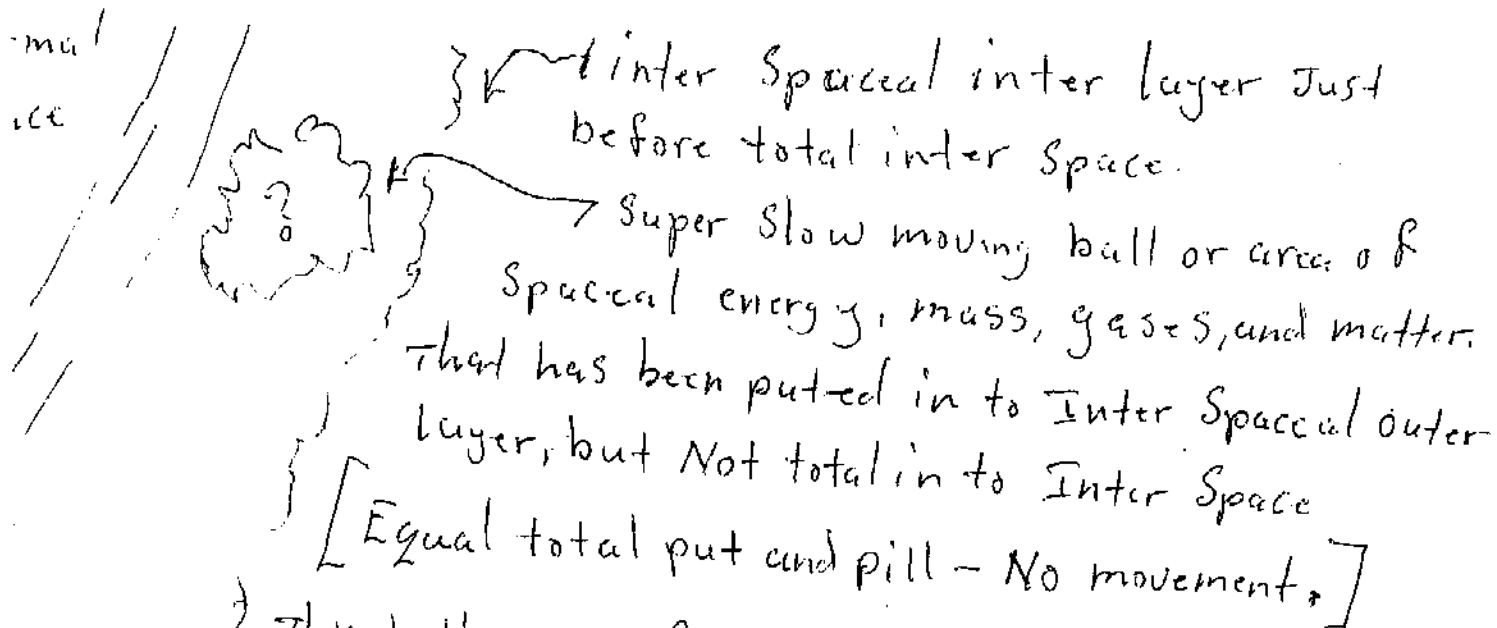 inter Spaceal inter layer Just
before total inter Space.
?
Super Slow moving ball or area of
Spaceal energy, mass, gases, and matter.
That has been puted in to Inter Spaceal outer-
layer, but Not total in to Inter Space
[Equal total put and pill - No movement.]